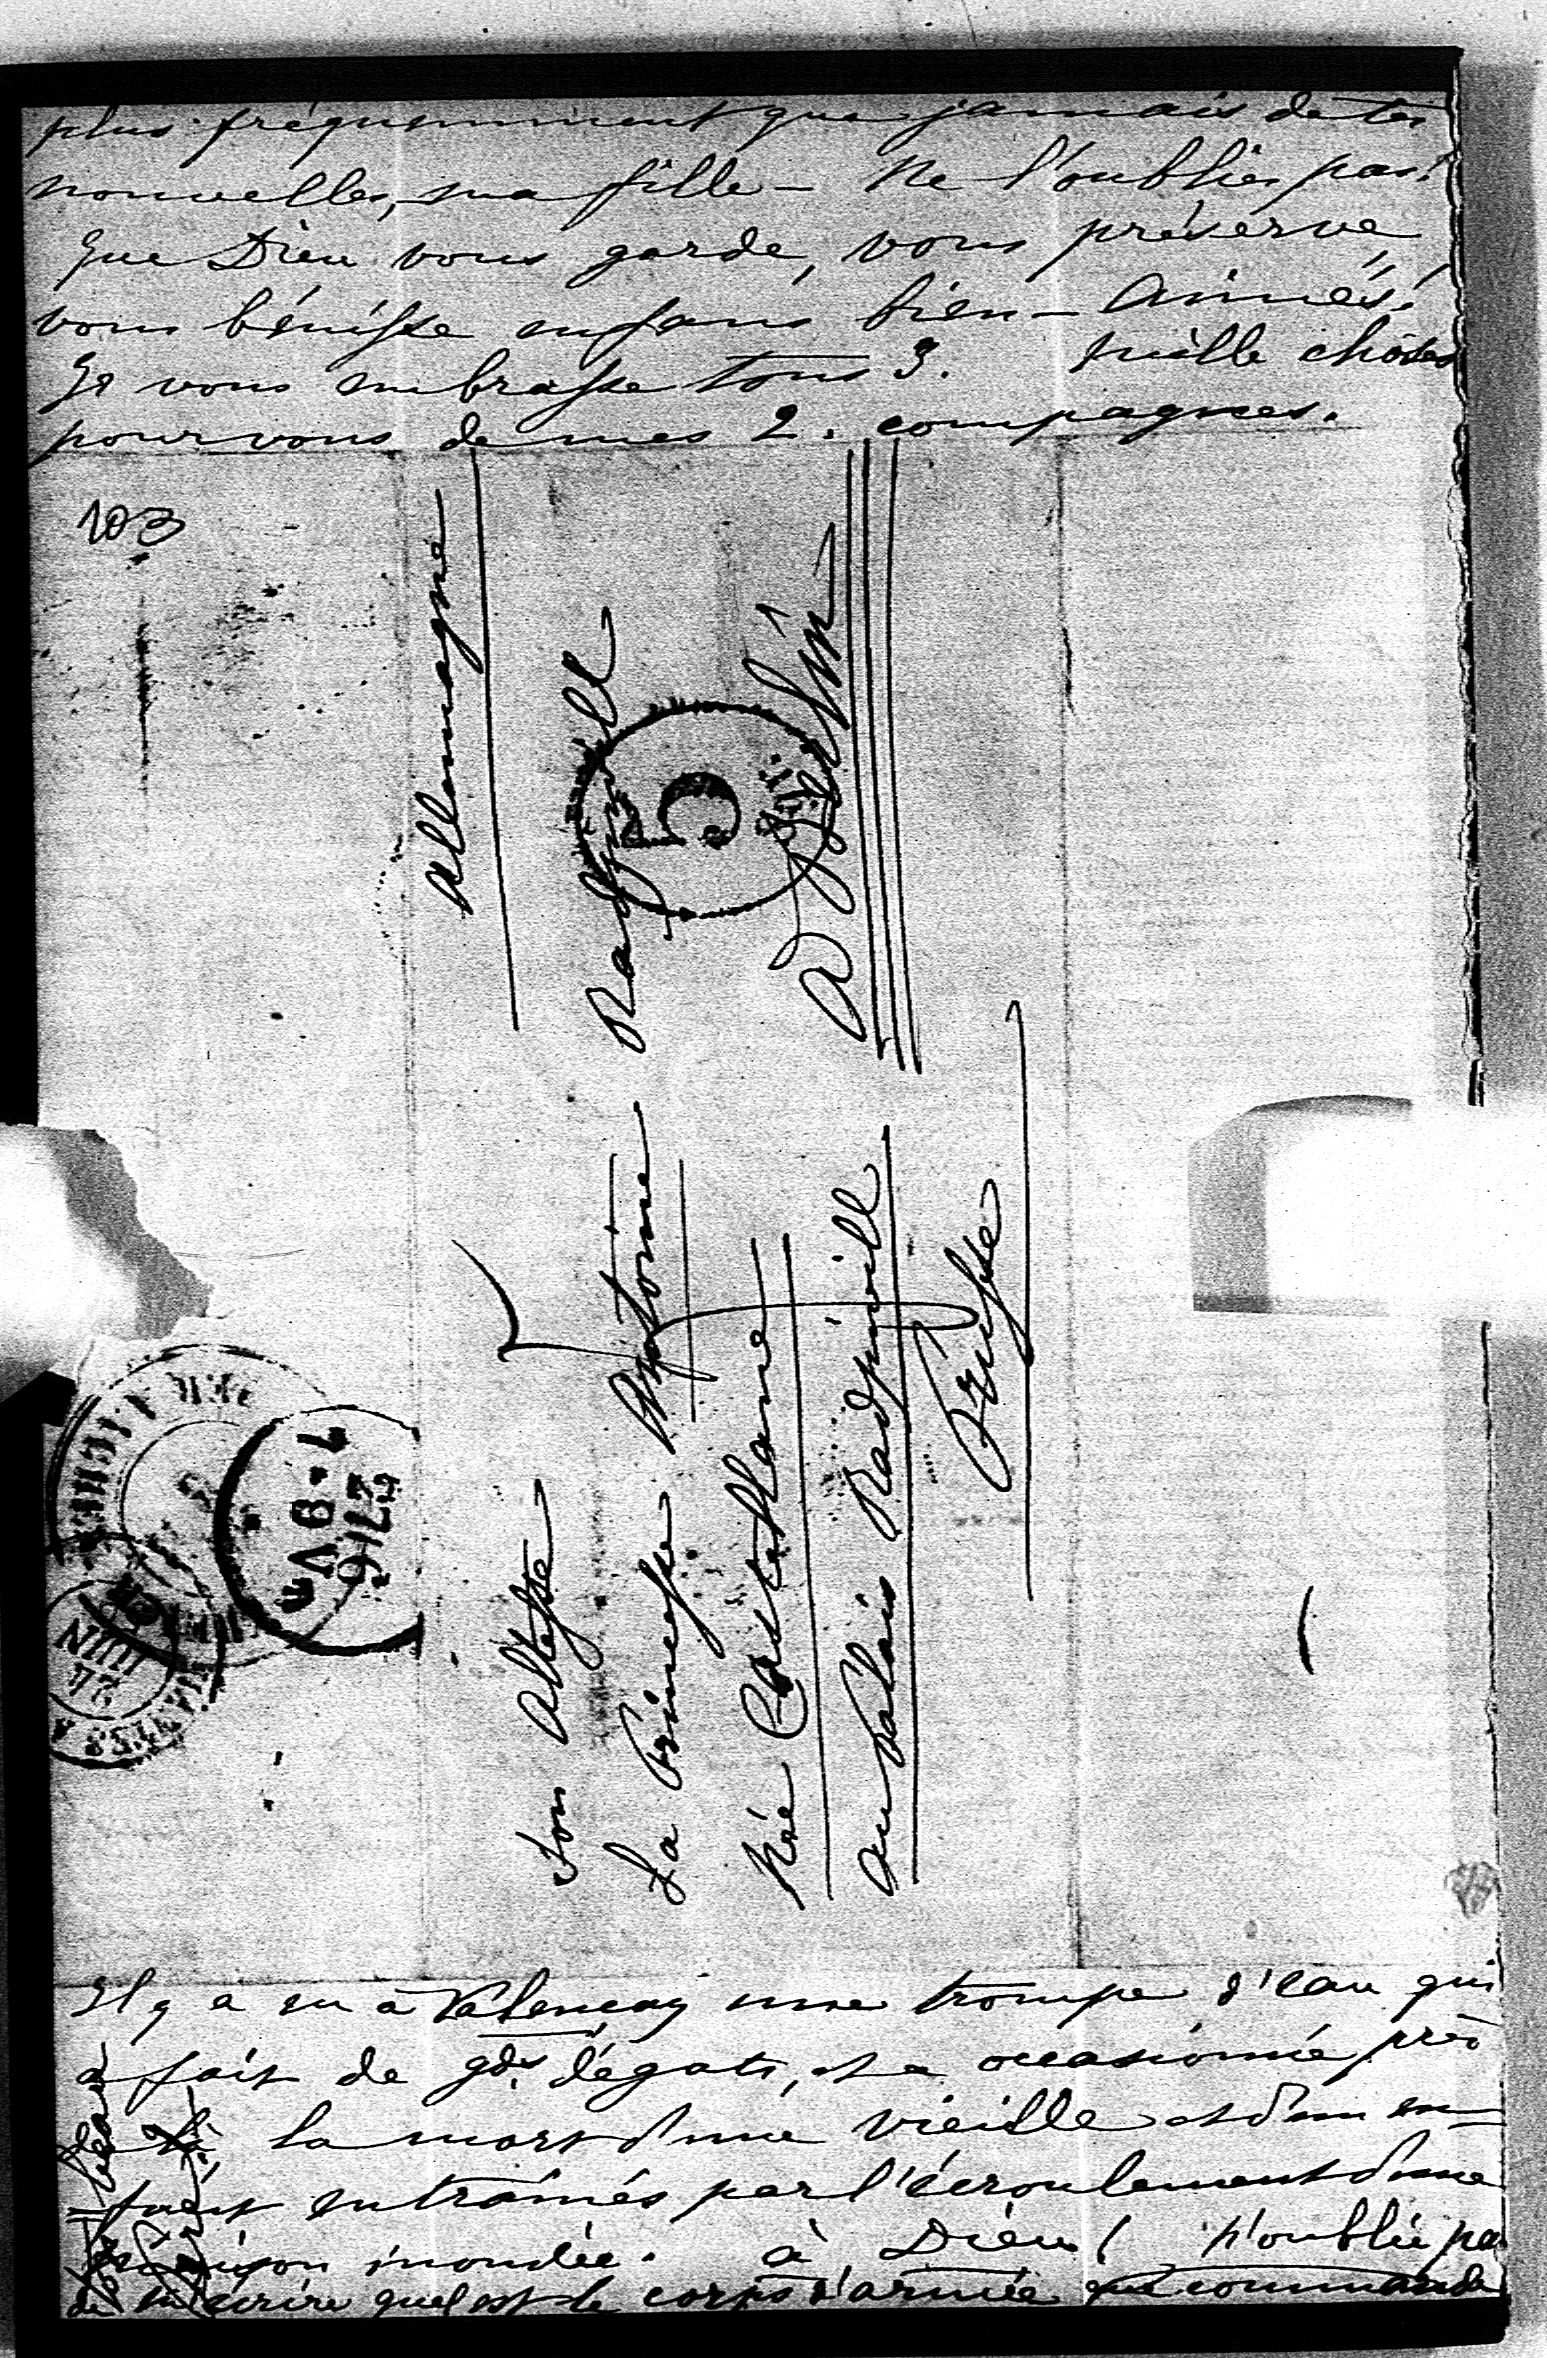 plus fréquemment que jamais de tes
nouvelles, ma fille – Ne l'oublies pas!
Que Dieu vous garde, vous préserve,
vous bénisse enfans bien-aimés!
Je vous embrasse tous 3. Mille choses
pour vous de mes 2. compagnes.
103
Allemagne
Son Altesse
La Princesse Antoine Radziwill
Née Castellane
à Berlin
au Palais Radziwill
Prusse
5
JUIN
27/6
Il y a eu à Valençay une trompe d'eau qui
a fait de gds dégats, et a occasionné près
la mort d'une vieille et d'un en-
fant entrainés par l'écroulement d'une
maison inondée. à Dieu! N'oublie pas
de m'écrire quel est le corps d'armée que commande